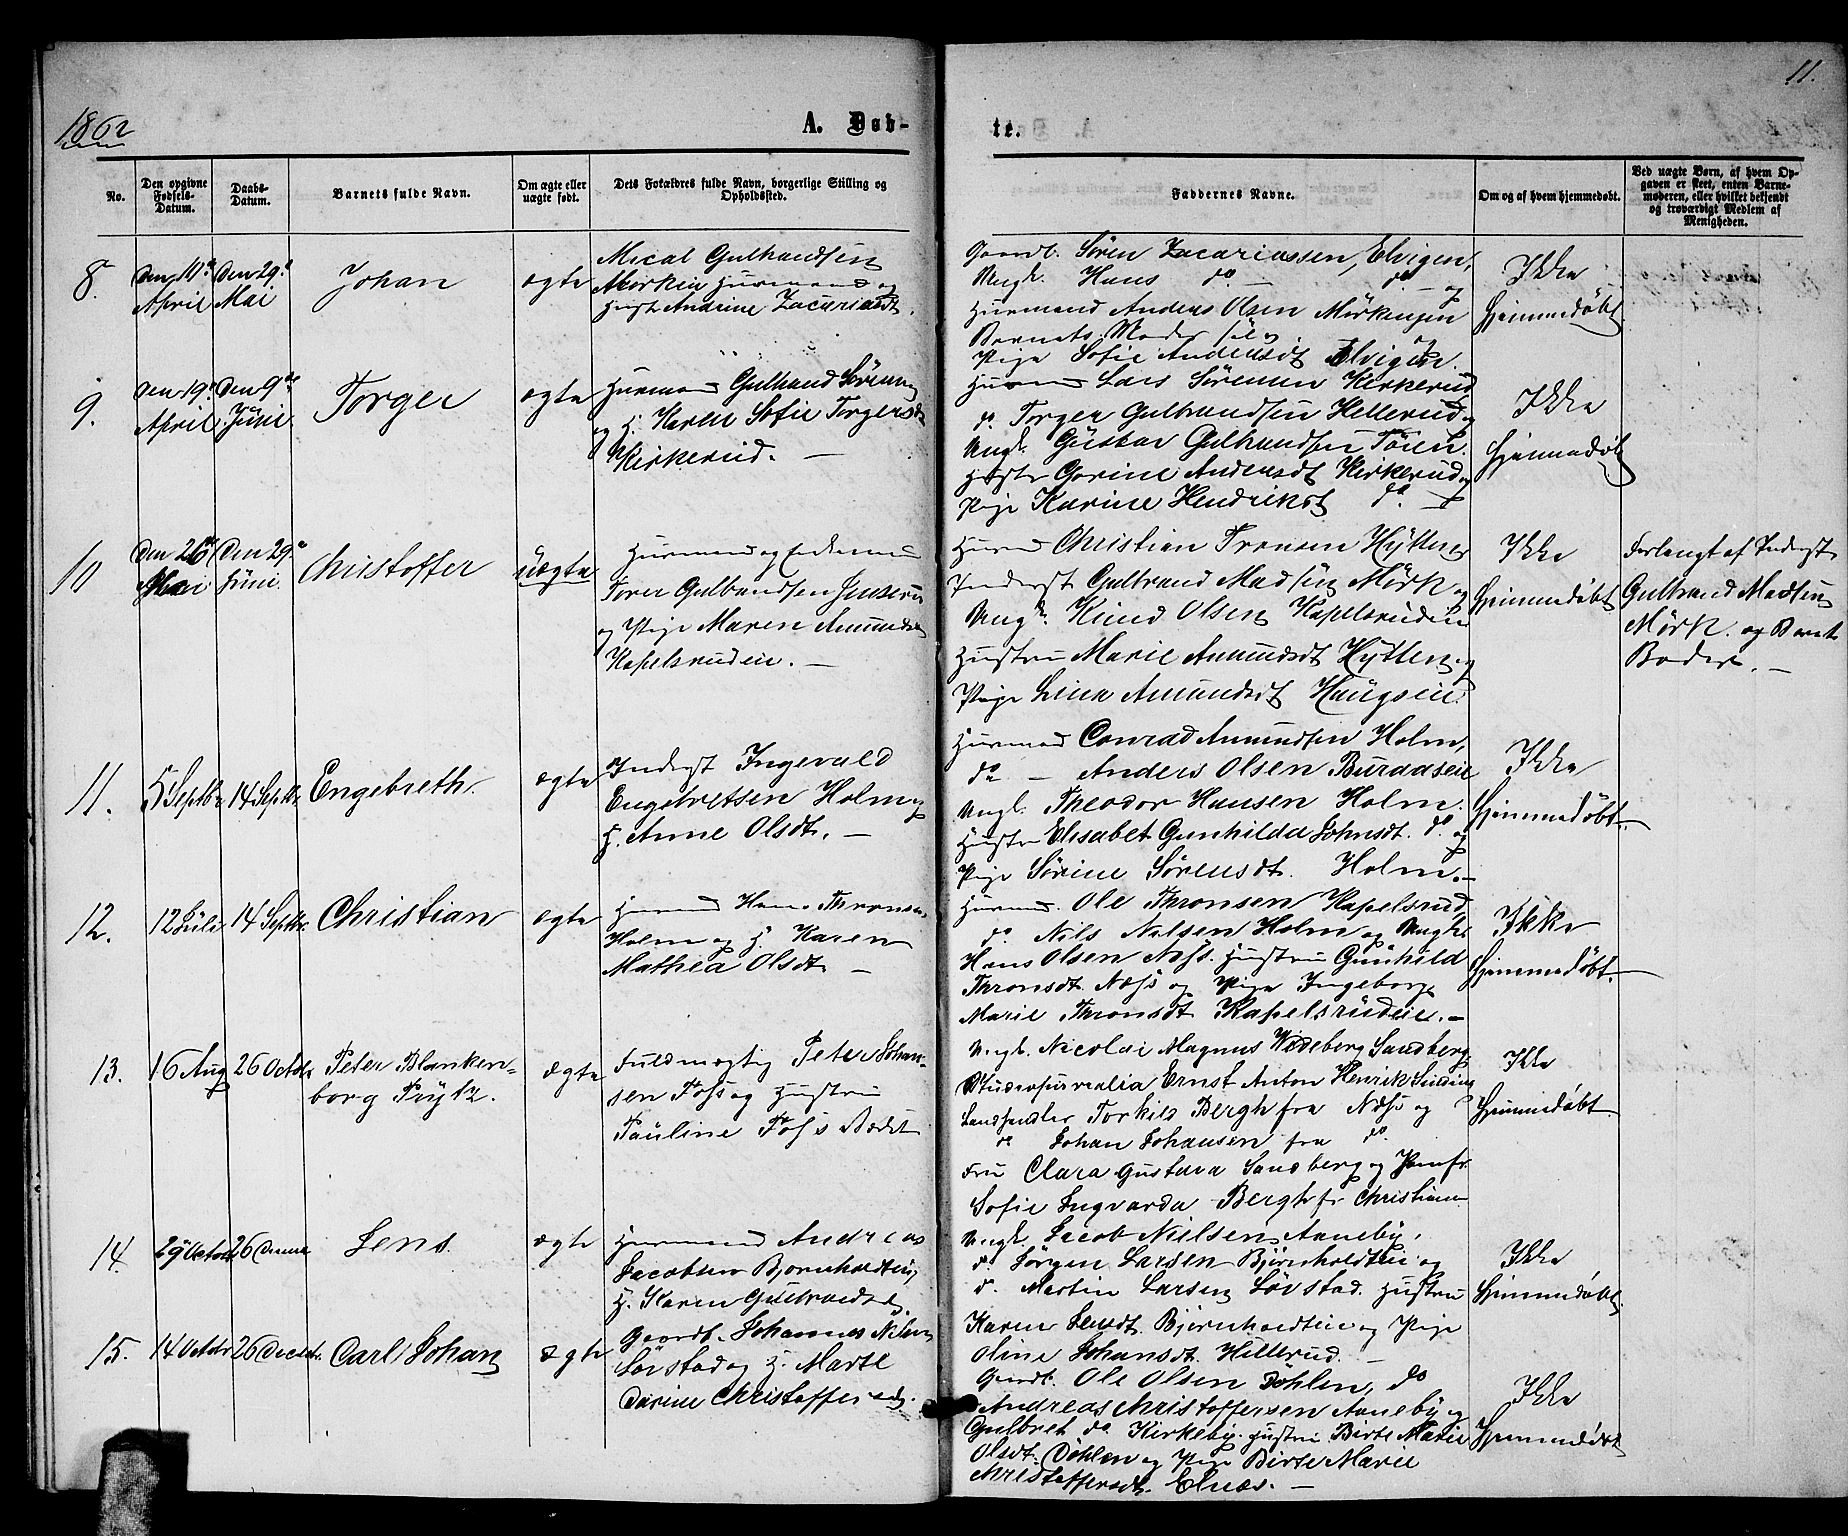 1862
A. Døb-
te.
11.
No.
Den opgivne Fødsels-Datum.
Daabs-Datum.
Barnets fulde Navn.
Om ægte eller uægte født.
Dets Forældres fulde Navn, borgerlige Stilling og Opholdssted.
Faddernes Navne.
Om og af hvem hjemmedøbt.
Ved uægte Børn, af hvem Opgaven er skeet, enten Barnemoderen, eller hvilket bekjendt og troværdigt Medlem af Menigheden.
8.
April
Den 29.
Mai
Johan
ægte
Mical Gulbrandsen
Mørkin Huusmand og
Hust. Andrine Zacariasdt.
Gaardb. Søren Zacariassen, Elvigen,
Ungk. Hans do. — do — og
Huusmand Anders Olsen Mørkeneien
Barnets Moder
Pige Sofie Andersdt Elvigen.
Ikke
hjemmedøbt
9.
Den 19.
April
Den 9de
Juni
Torger
ægte
Huusmand Gulbrand Sørensen
og H. Karen Sofie Torgersdt
Kirkerud. —
Huusmd Lars Sørensen Kirkerud,
do. Torger Gulbrandsen Hellerud og
Ungk. Gustav Gulbrandsen Tøien.
Hustr Gorine Andersdt Kirkerud og
Pige Karine Hendriksdt do.
Ikke
hjemmedøbt
10
Den 26
Mai
Den 29.
Juni.
Christoffer
uægte
Huusmand og Enkemand
Torer Gulbrandsen
og Pige Maren Amundsdt
Kapelsrudeie. —
Huusmd Christian Tronsen Hytten
Inderst Gulbrand Madsen Mørk og
Ungk. Knud Olsen Kapelsrudeie
Hustru Marie Amundsdt Hytten og
Pige Lina Amundsdt Haugseie.
Ikke
hjemmedøbt
Forlangt af Inderst
Gulbrand Madsen
Mørk. og Barnets
Moder. —
11.
5 Septbr
14 Septbr
Engebreth.
ægte
Inderst Ingevald
Engebretsen Holm og
H. Anne Olsdt. —
Huusmand Conrad Amundsen Holm,
do — Anders Olsen Buraaseie
Ungk. Theodor Hansen Holm.
Hustru Elisabet Gunhilda Johnsdt. do. og
Pige Sørine Sørensdt. Holm. —
Ikke
hjemmedøbt.
12.
12 Juli
14 Septbr.
Christian
ægte
Huusmd Hans Thronsen
Holm og H. Karen
Mathea Olsdt —
Huusmd. Ole Thronsen Kapelsrud,
do. Nils Nilsen Holm og Ungk.
Hans Olsen Næss. Hustru Gunhild
Thronsdt Næss og Pige Ingeborg
Marie Thronsdt Kapelsrudeie. —
Ikke
hjemmedøbt.
13.
16 Aug
26 Octbr
Peter Blanken-
borg Frytz.
ægte
Fuldmægtig Peter Johan-
sen Foss og Hustru
Pauline Foss
Ungk. Nicolai Magnus Wideberg Sandberg,
Studiosus realia Ernst Anton Henrik Sinding
Landhandler Torkils Bergh fra Næss og
do Johan Johansen fra do.
Fru Clara Gustava Sandberg og Jomfr.
Sofie Ingvarda Bergh fr Christiania
Ikke
hjemmedøbt
14.
29 Octbr
26 Decbr
Jens.
ægte
Huusmand Andreas
Jacobsen Bjørnholdteie,
H. Karen Gulbrandsdt.
Ungk. Jacob Nielsen Aaneby,
do. Jørgen Larsen Bjørnholdteie og
do. Martin Larsen Løvstad. Hustru
Karen Jensdt. Bjørnholdteie og Pige
Oline Johansdt. Hillerud. —
Ikke
hjemmedøbt.
15.
14 Octbr
26 Decbr.
Carl Johan
ægte
Gaardb. Johannes Nilsen
Løvstad og H. Marte
Davine Christoffersdt.
Gaardb. Ole Olsen Døhlen, do
Andreas Christoffersen Aaneby og
Gulbret do. Kirkeby. Hustru Birte Marie
Olsdt. Døhlen og Pige Birte Marie
Christoffersdt. Elnæs. —
Ikke
hjemmedøbt